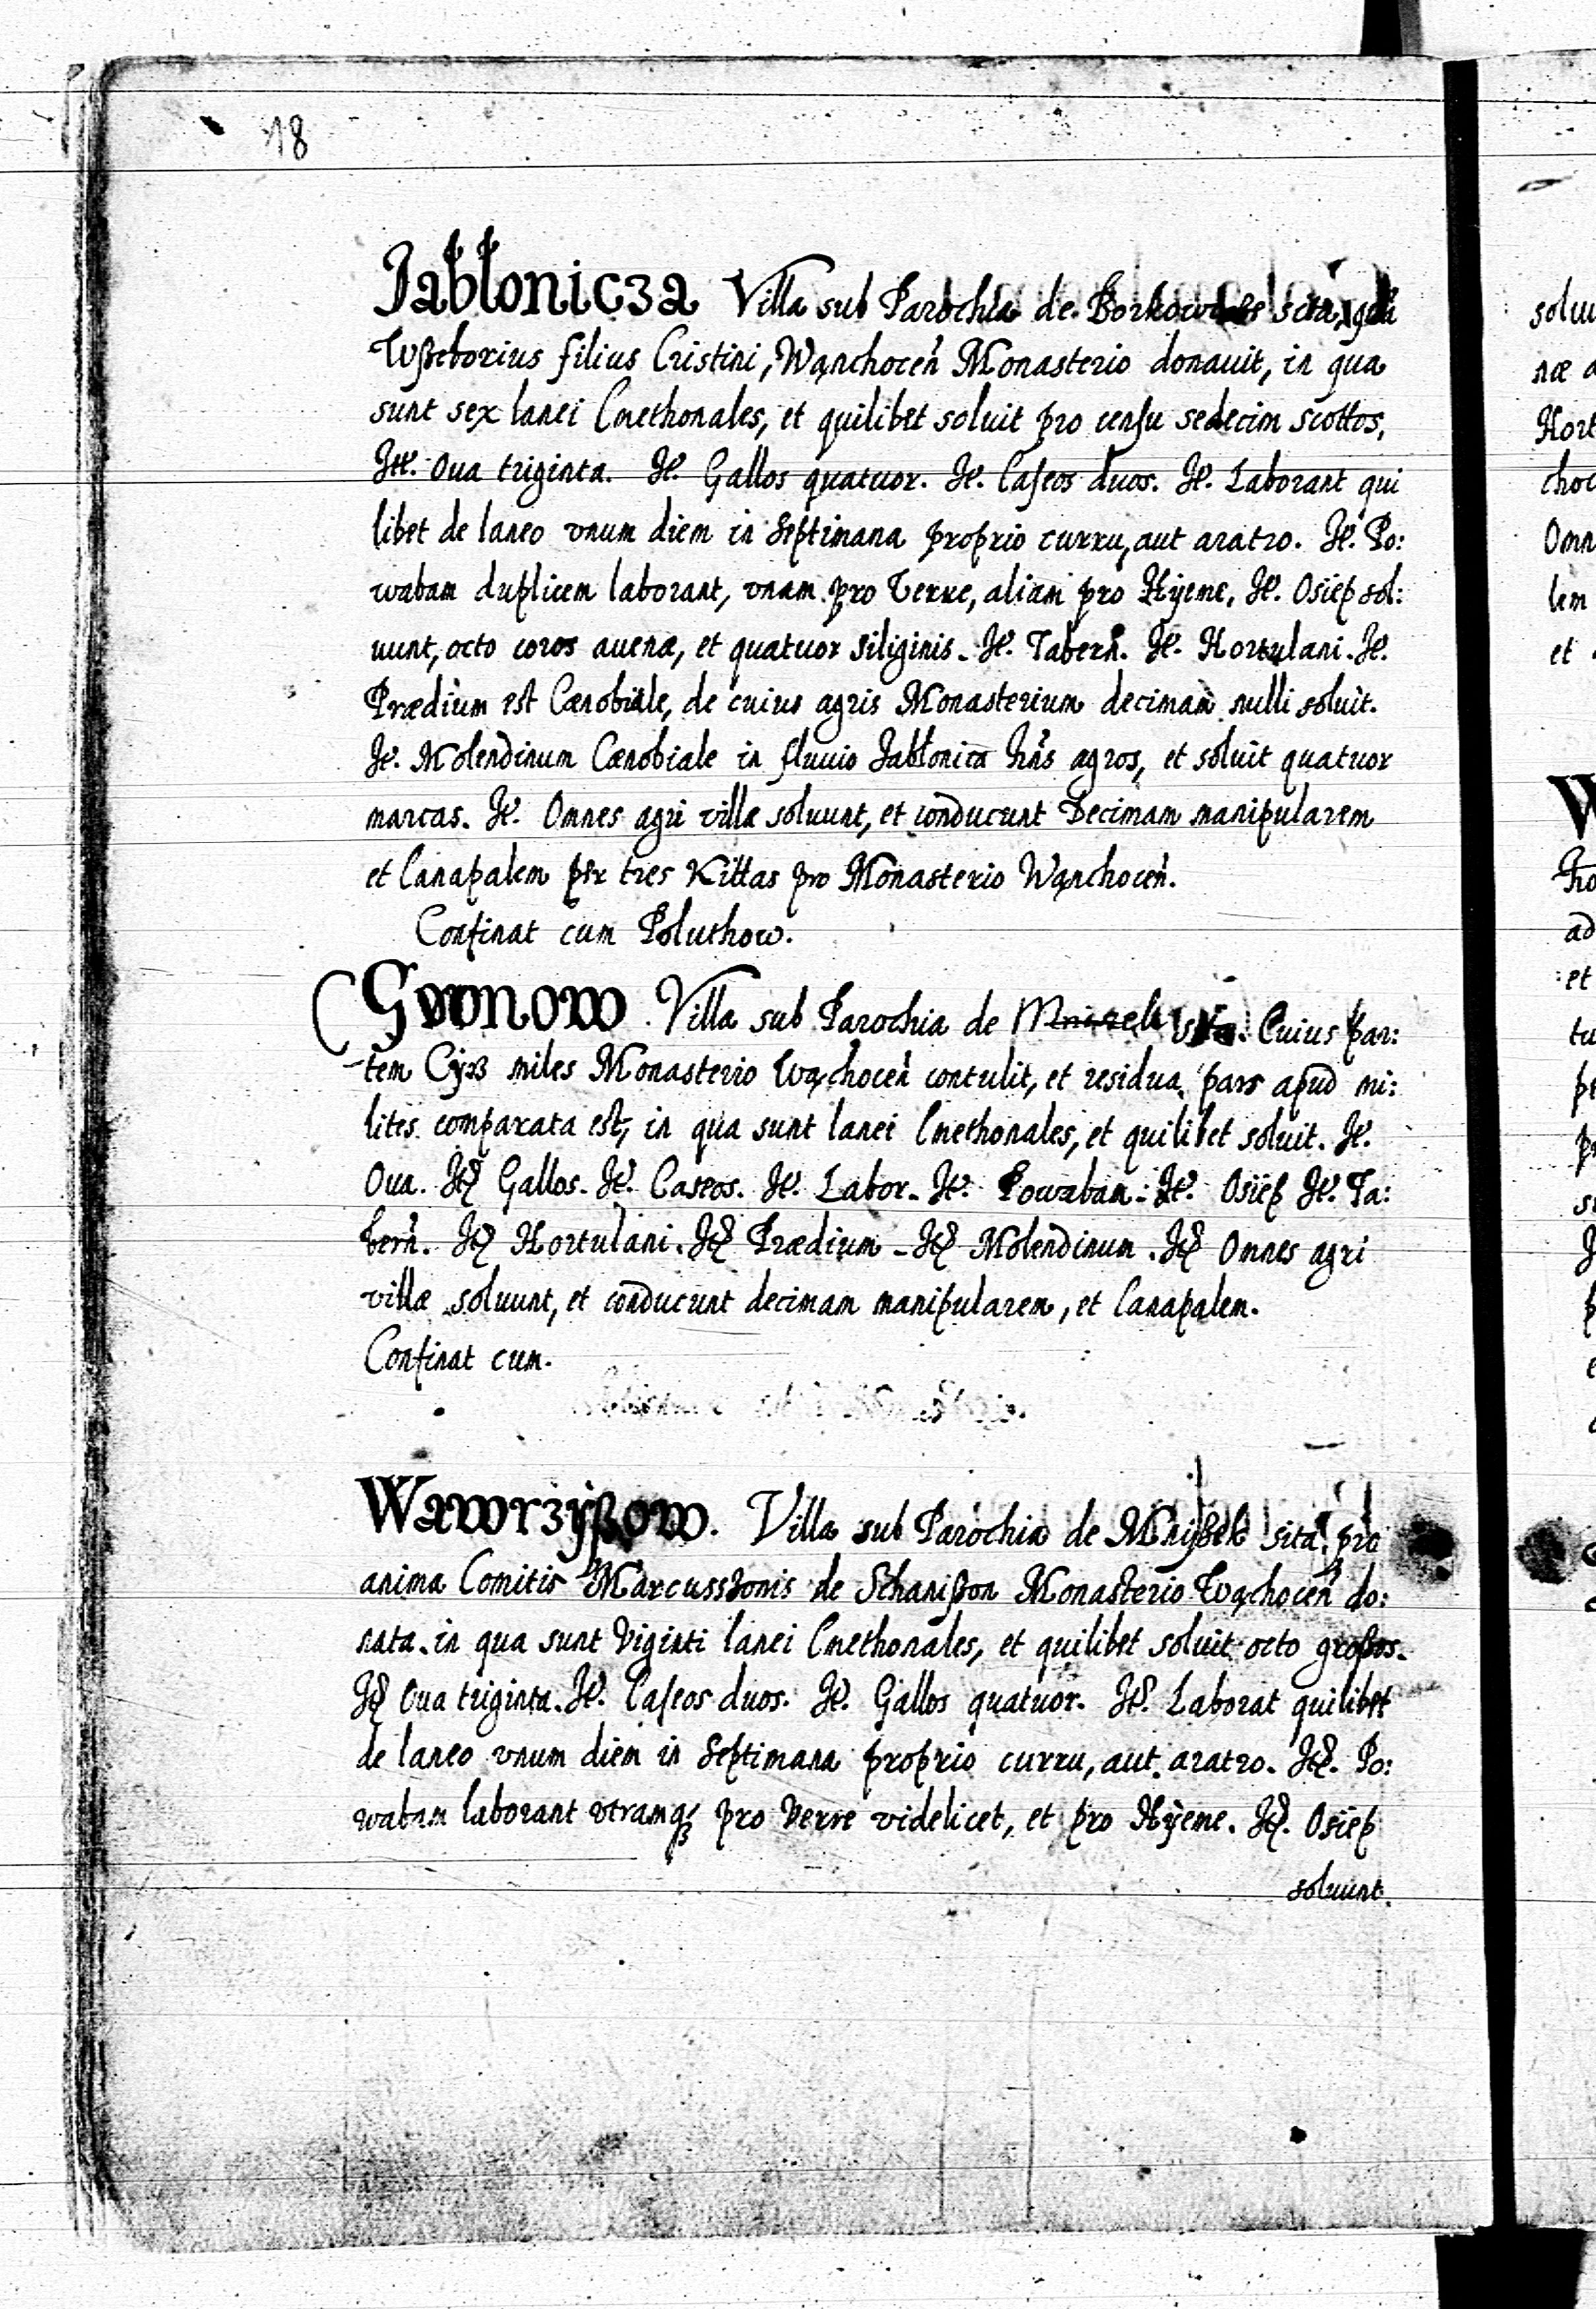 18
Jabłonicza Villa sub Parochia de Borkowicze sita, quā
Wßeborius filius Cristini, Wąnchoceń Monasterio donauit, in qua
sunt sex lanei Cmethonales, et quilibet soluit pro censu sedecim scottos,
Itē. Oua triginta. Itē. Gallos quatuor. Itē. Caseos duos. Itē. Laborant qui
libet de laneo vnum diem in Septimana proprio curru, aut aratro. Itē. Po:
wabam duplicem laborant, vnam pro Verre, aliam pro Hÿeme, Itē. Osiep sol:
uunt, octo coros auenæ, et quatuor siliginis. Itē. Taberń. Itē. Hortulani. Itē.
Prædium est Cænobiale, de cuius agris Monasterium decimam nulli soluit.
Itē. Molendinum Cænobiale in fluuio Jabłonica hn̄s agros, et soluit quatuor
marcas. Itē. Omnes agri villæ soluunt, et conducunt Decimam manipularem
et Canapalem per tres Kittas pro Monasterio Wąnchoceń.
Confinat cum Poluthow.
Gwonow Villa sub Parochia de Cuius par:
tem miles Monasterio Wąchoceń contulit, et residua pars apud mi:
lites comparata est, in qua sunt lanei Cmethonales, et quilibet soluit. Itē.
Oua. Itē Gallos. Itē. Caseos. Itē. Labor. Itē. Powaban. Itē. Osiep Itē. Ta:
berń. Itē Hortulani. Itē Prædium. Itē Molendinum. Itē Omnes agri
villæ soluunt, et conducunt decimam manipularem, et Canapalem.
Confinat cum.
Wawrzÿßow. Villa sub Parochia de sita, pro
anima Comitis de Monasterio Wąchoceń do:
nata. in qua sunt Viginti lanei Cmethonales, et quilibet soluit octo großos.
Itē Oua triginta. Itē. Caseos duos. Itē. Gallos quatuor. Itē. Laborat quilibet
de laneo vnum diem in Septimana proprio curru, aut aratro. Itē. Po:
wabam laborant vtramq₃ pro Verre videlicet, et pro Hÿeme. Itē. Osiep
soluunt.